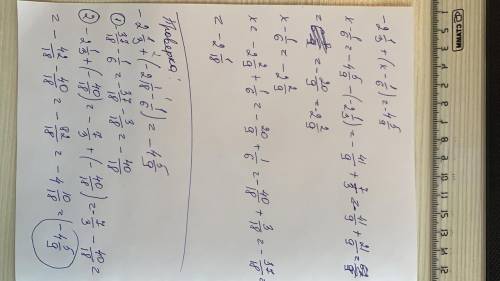 -2 1/3 + (x - 1/6) = -4 5/9
x - 1/6 = -4 5/9 - (-2 1/3) = -41/9 + 7/3 = -41/9 + 21/9 =
= -20/9 = -2 2/9
x - 1/6 = -2 2/9
x = -2 2/9 + 1/6 = -20/9 + 1/6 = -40/18 + 3/18 = -37/18 =
= -2 1/18
Проверка:
-2 1/3 + (-2 1/18 - 1/6) = -4 5/9
① -37/18 - 1/6 = -37/18 - 3/18 = -40/18
② -2 1/3 + (-40/18) = -7/3 + (-40/18) = -7/3 - 40/18 =
= -42/18 - 40/18 = -82/18 = -4 10/18 = -4 5/9